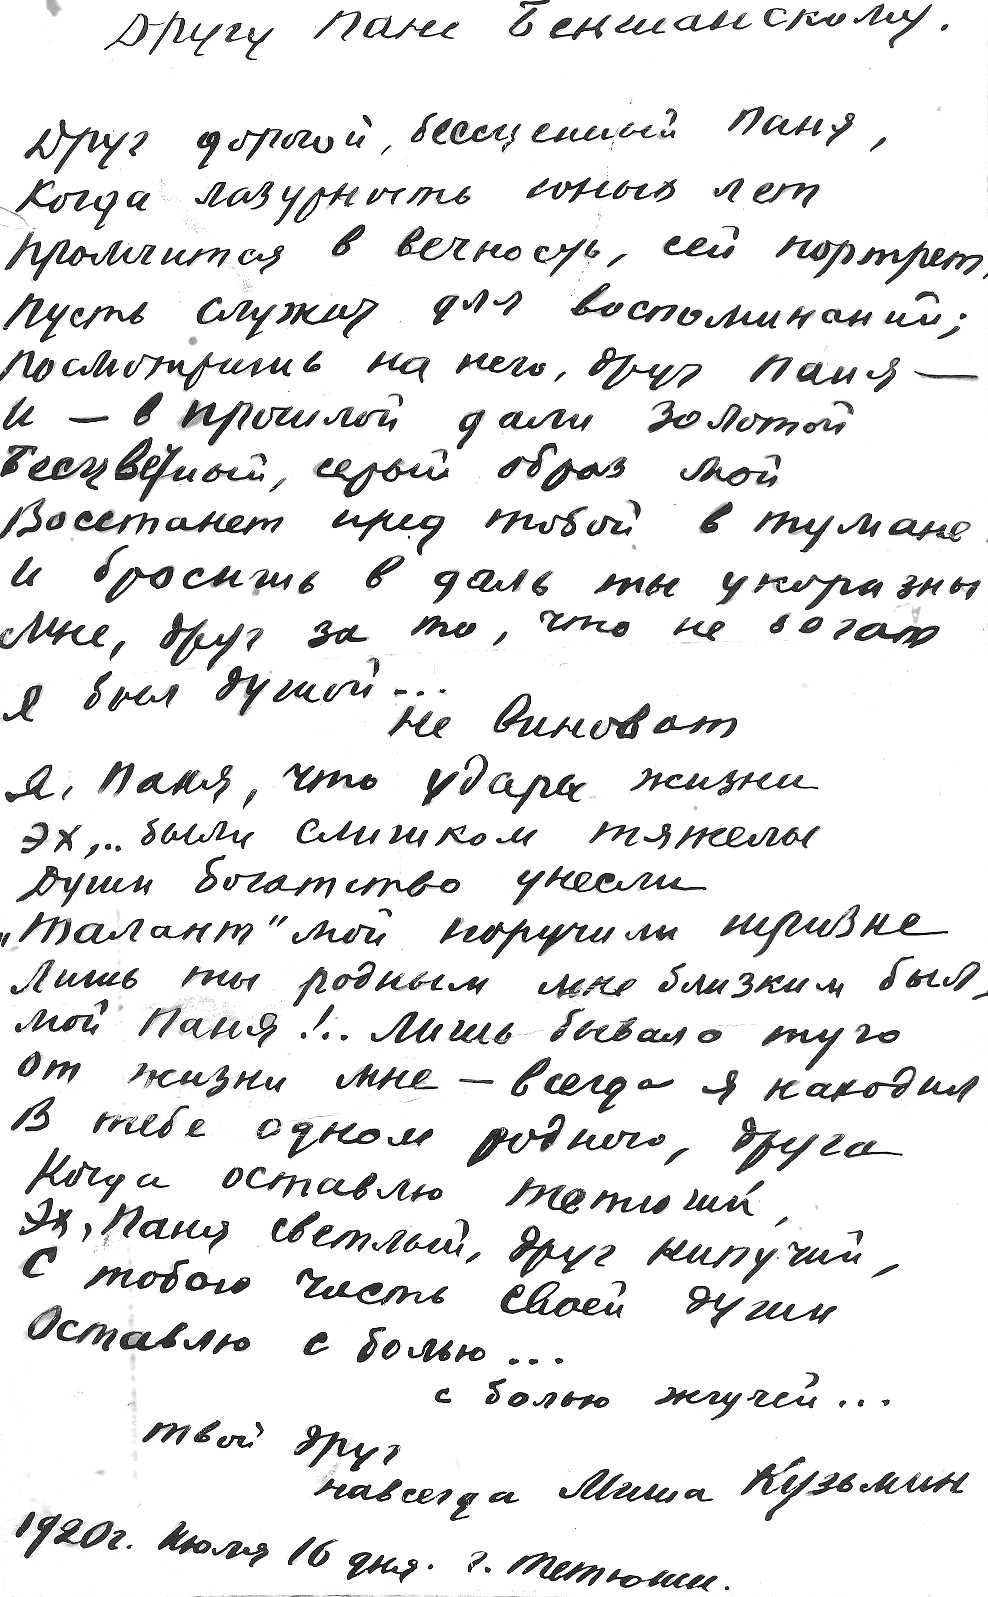 Другу Пане Беншанскому.
Друг дорогой, бесценный Паня,
Когда лазурность юных лет
Промчится в вечность, сей портрет,
Пусть служит для воспоминаний;
Посмотришь на него, друг Паня —
И — в прошлой дали золотой
Бесцветный, серый образ мой
Восстанет пред тобой в тумане
И бросишь в даль ты укоризны
Мне, друг за то, что не богат
Я был душой...
Не виноват
Я, Паня, что удары жизни
Эх,.. были слишком тяжелы
Души богатство унесли
„Талант" мой поручили тризне
Лишь ты родным мне близким был,
Мой Паня!.. Лишь бывало туго
От жизни мне — всегда я находил
В тебе одном родного, друга
Когда оставлю Тетюши,
Эх, Паня светлый, друг кипучий,
С тобою часть своей души
Оставлю с болью...
с болью жгучей...
твой друг
навсегда Миша Кузьмин
1920г. Июля 16 дня. г. Тетюши.